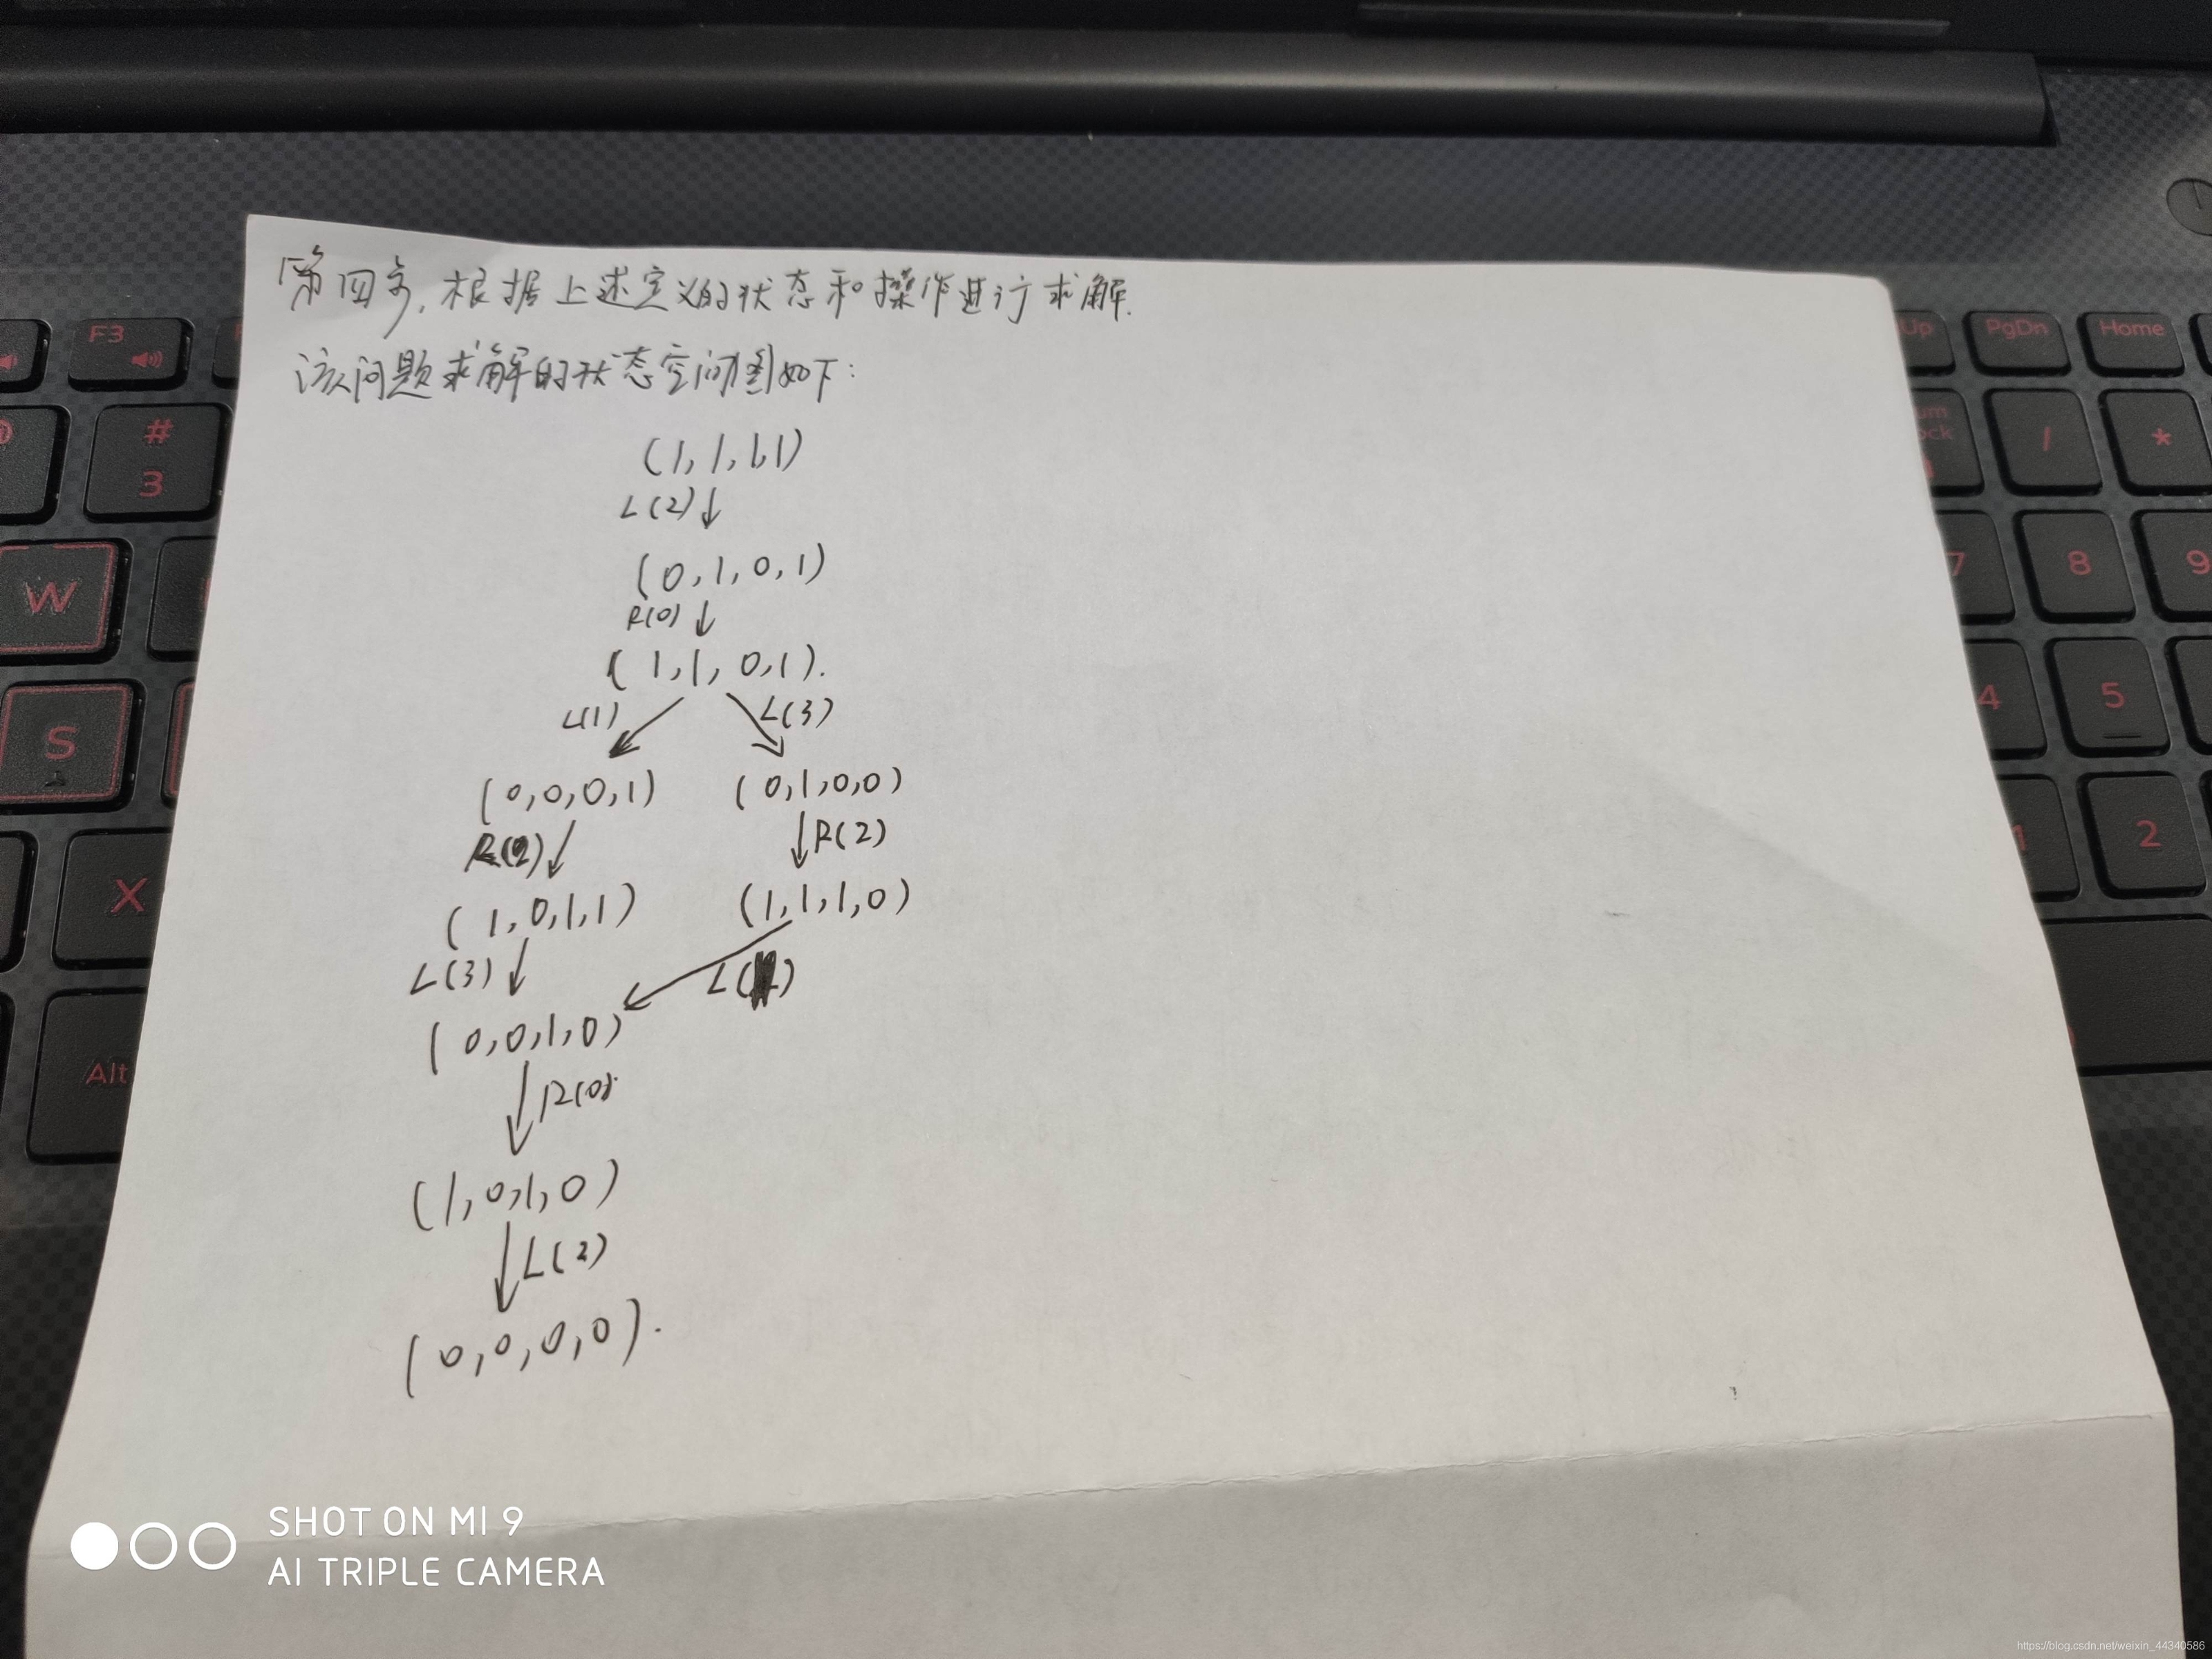 第四步,根据上述定义的状态和操作进行求解.
该问题求解的状态空间图如下:
(1,1,1,1)
L(2)
(0,1,0,1)
R(0)
(1,1,0,1).
L(1) L(3)
(0,0,0,1) (0,1,0,0)
R(2) R(2)
(1,0,1,1) (1,1,1,0)
L(3) L( )
(0,0,1,0)
R(0).
(1,0,1,0)
L(2)
(0,0,0,0).
SHOT ON MI 9
AI TRIPLE CAMERA
https://blog.csdn.net/weixin_44340586
F3
PgDn
Home
#
3
/
*
W
7
8
9
S
4
5
X
1
2
Alt